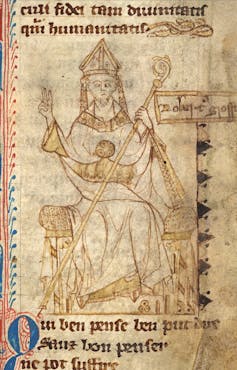 culi fidei tam diuinitatis
qui humanitatis.
Qui ben pense ben put dire
Sanz bon penser
ne pot suffire